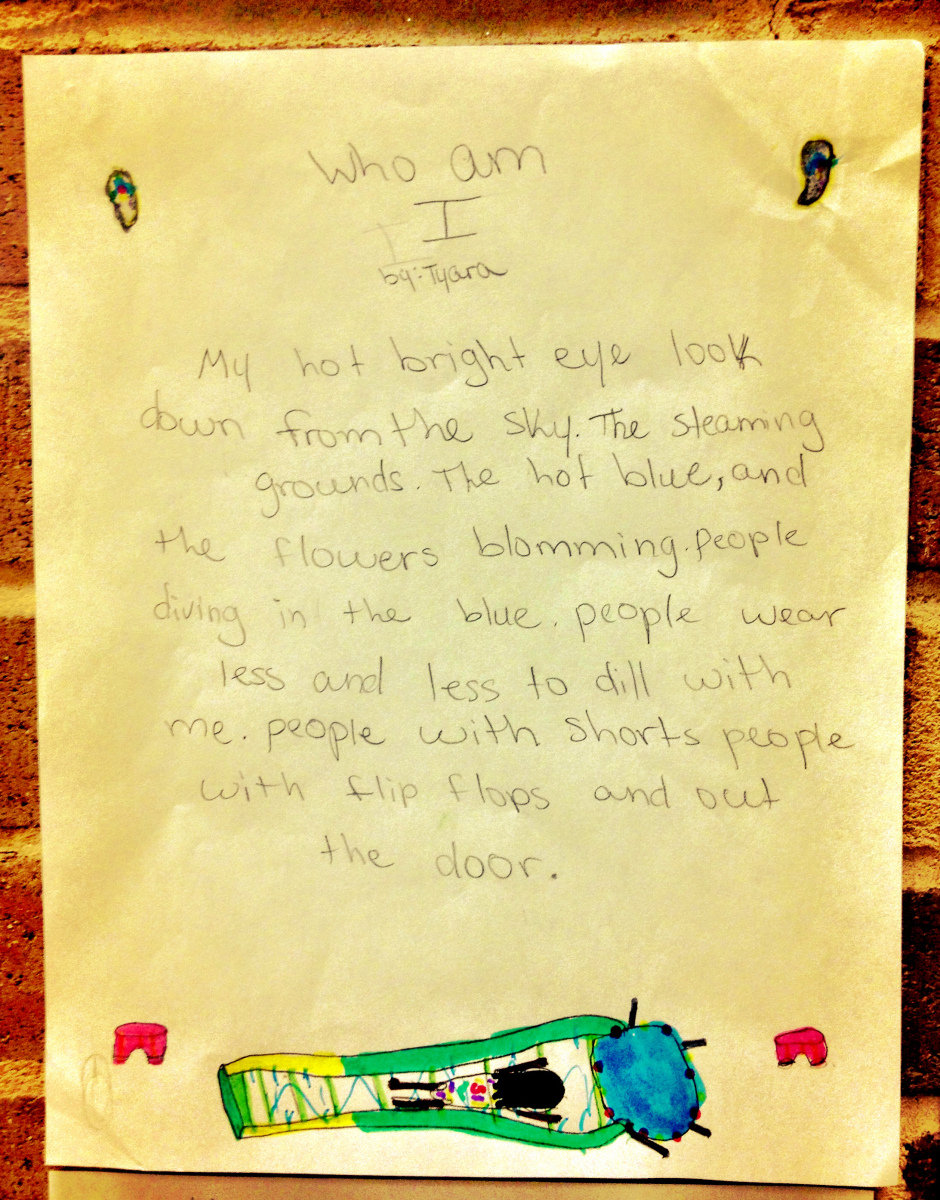 Who am
I
by: Tyara
My hot bright eye look
down from the sky. The steaming
grounds. The hot blue, and
the flowers blomming. people
diving in the blue. people wear
less and less to dill with
me. people with shorts people
with flip flops and out
the door.